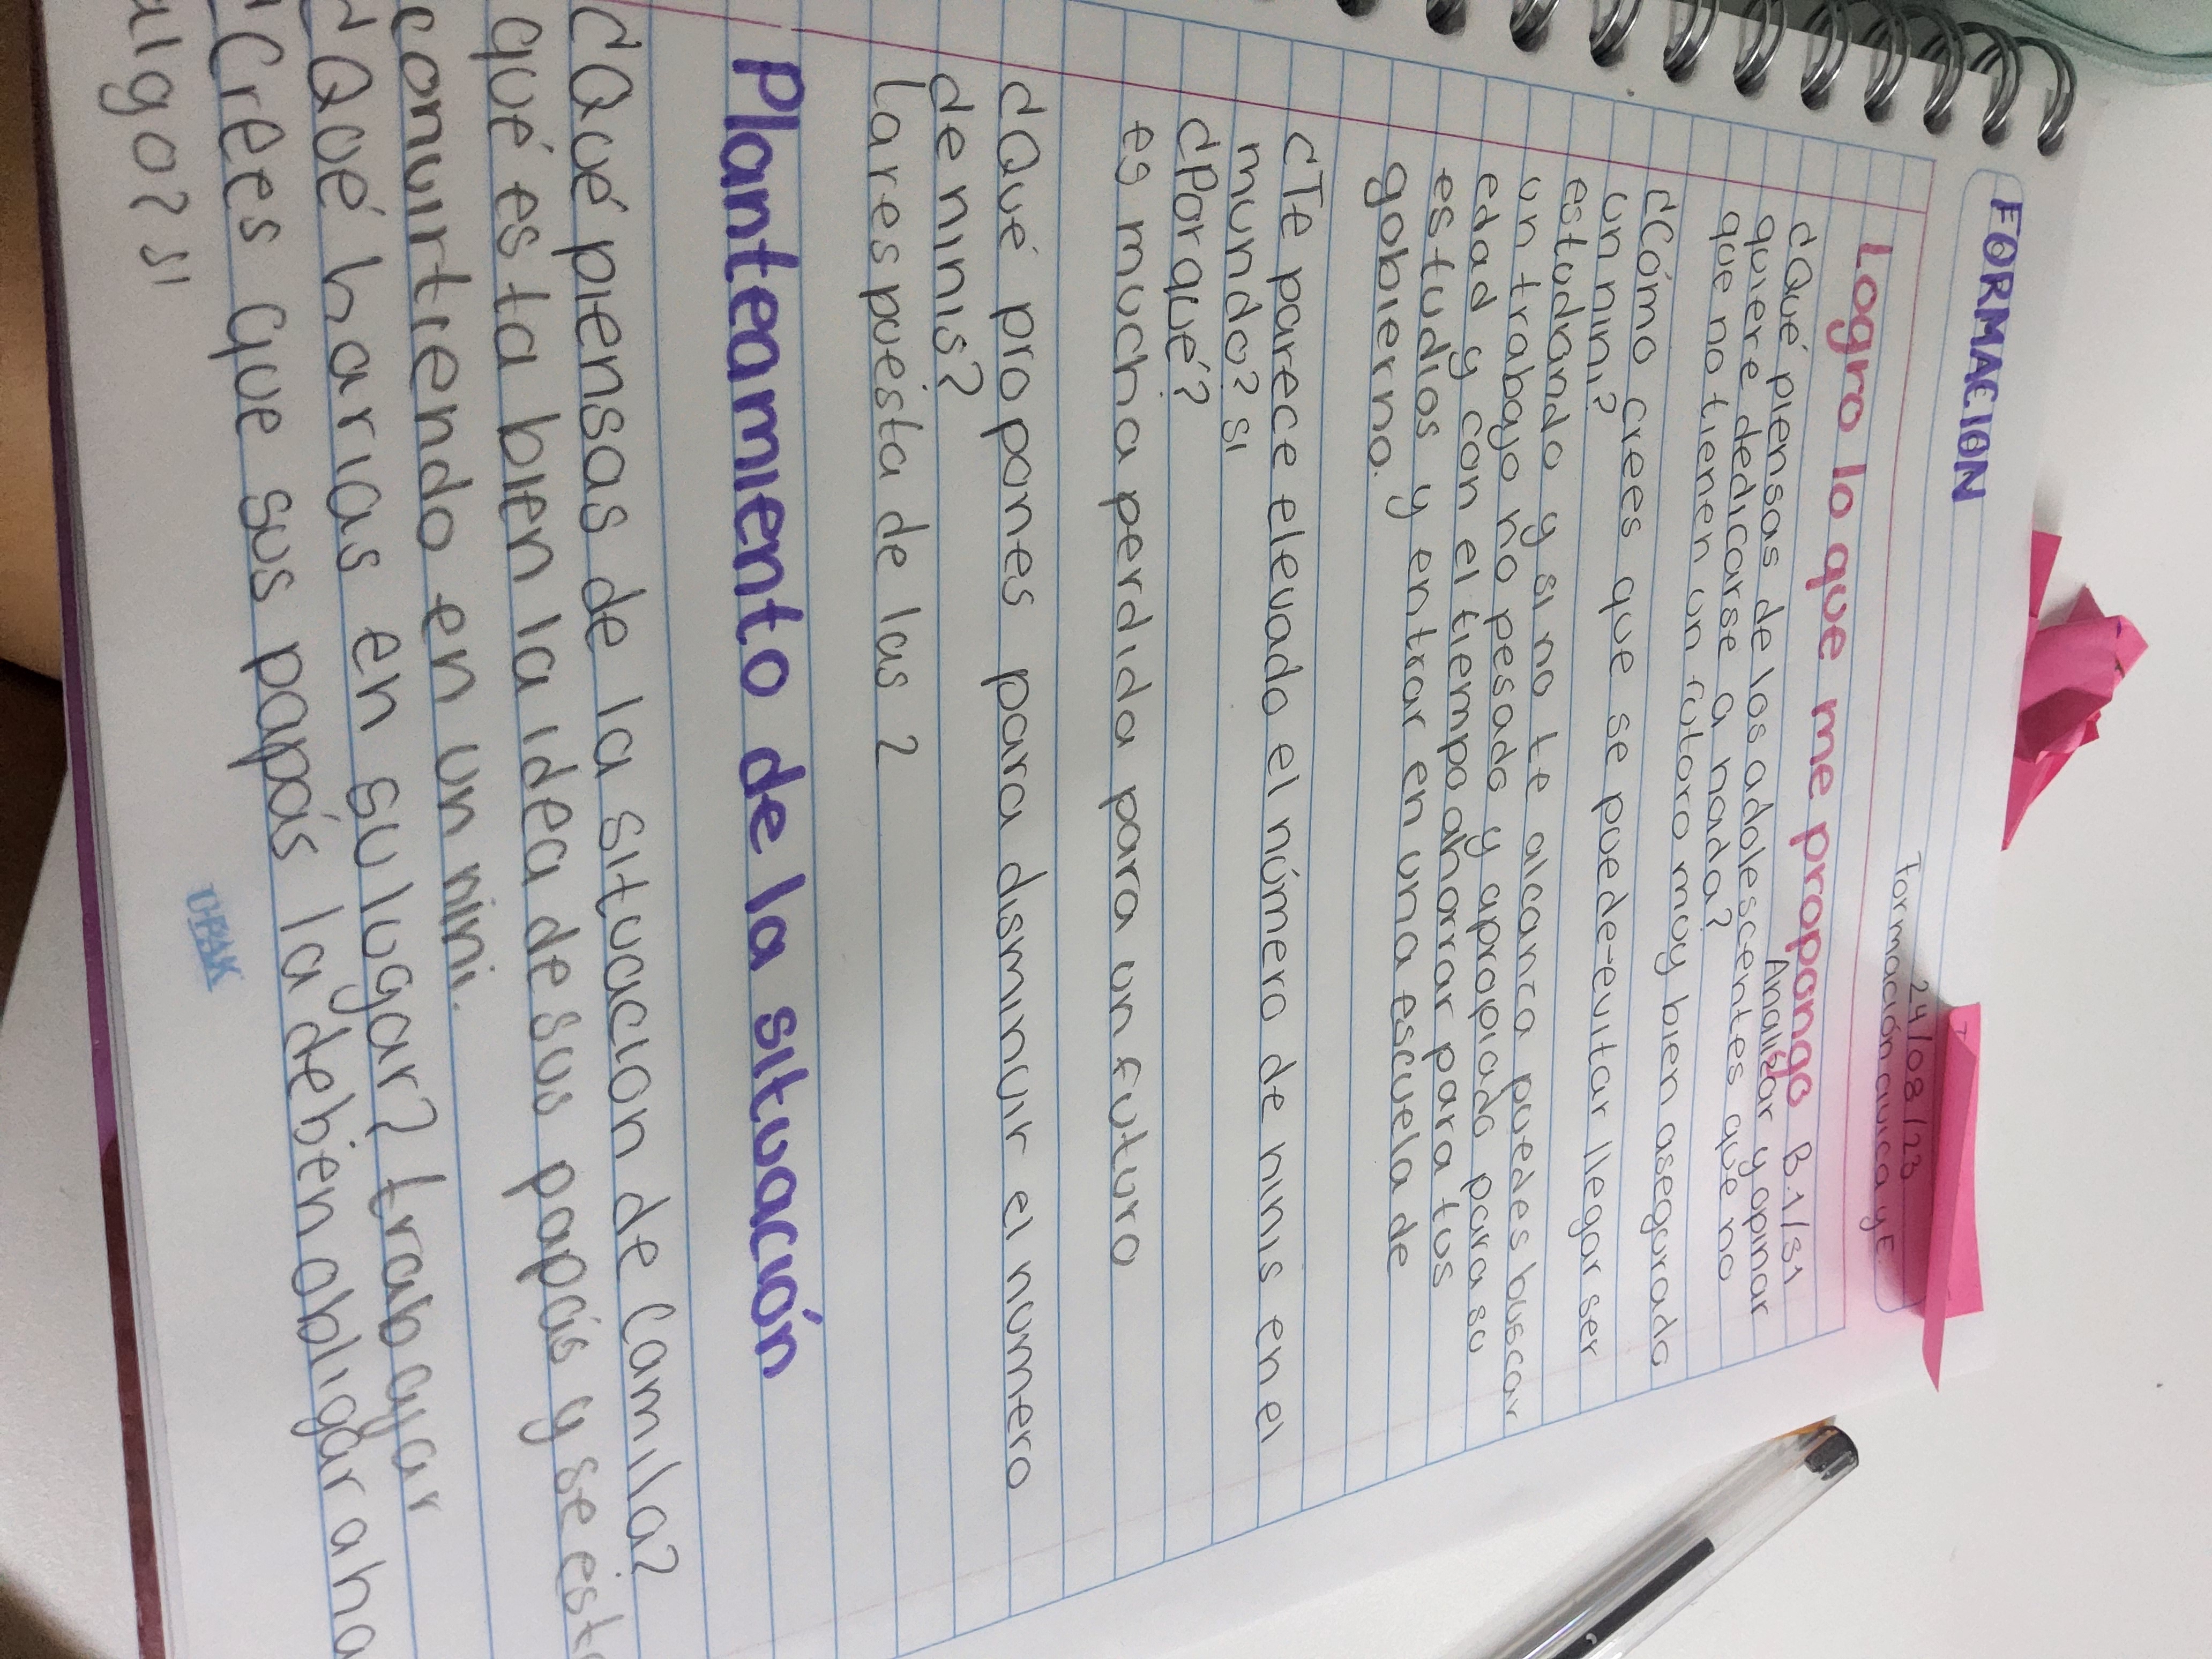 FORMACION
24/08/23
Formación civica y E
Logro lo que me propongo B.1/S1
Analizar y opinar
¿Qué piensas de los adolescentes que no
quiere dedicarse a nada?
que no tienen un futoro muy bien asegurado
¿Cómo crees que se puede evitar llegar ser
un nini?
estudando y si no te alcanza puedes buscar
un trabajo no pesado y apropiado para su
edad y con el tiempo ahorrar para tus
estudios y entrar en una escuela de
gobierno.
¿Te parece elevado el número de ninis en el
mundo? si
¿Por qué?
es mucha perdida para un futuro
¿Qué propones para disminuir el numero
de ninis?
La respuesta de las 2
Planteamiento de la situación
¿Qué piensas de la situacion de Camila?
qué esta bien la idea de sus papás y se est
convirtiendo en un nini.
¿Qué harias en su lugar? trabajar
¿Crees que sus papás la deben obligar a ha
algo? si